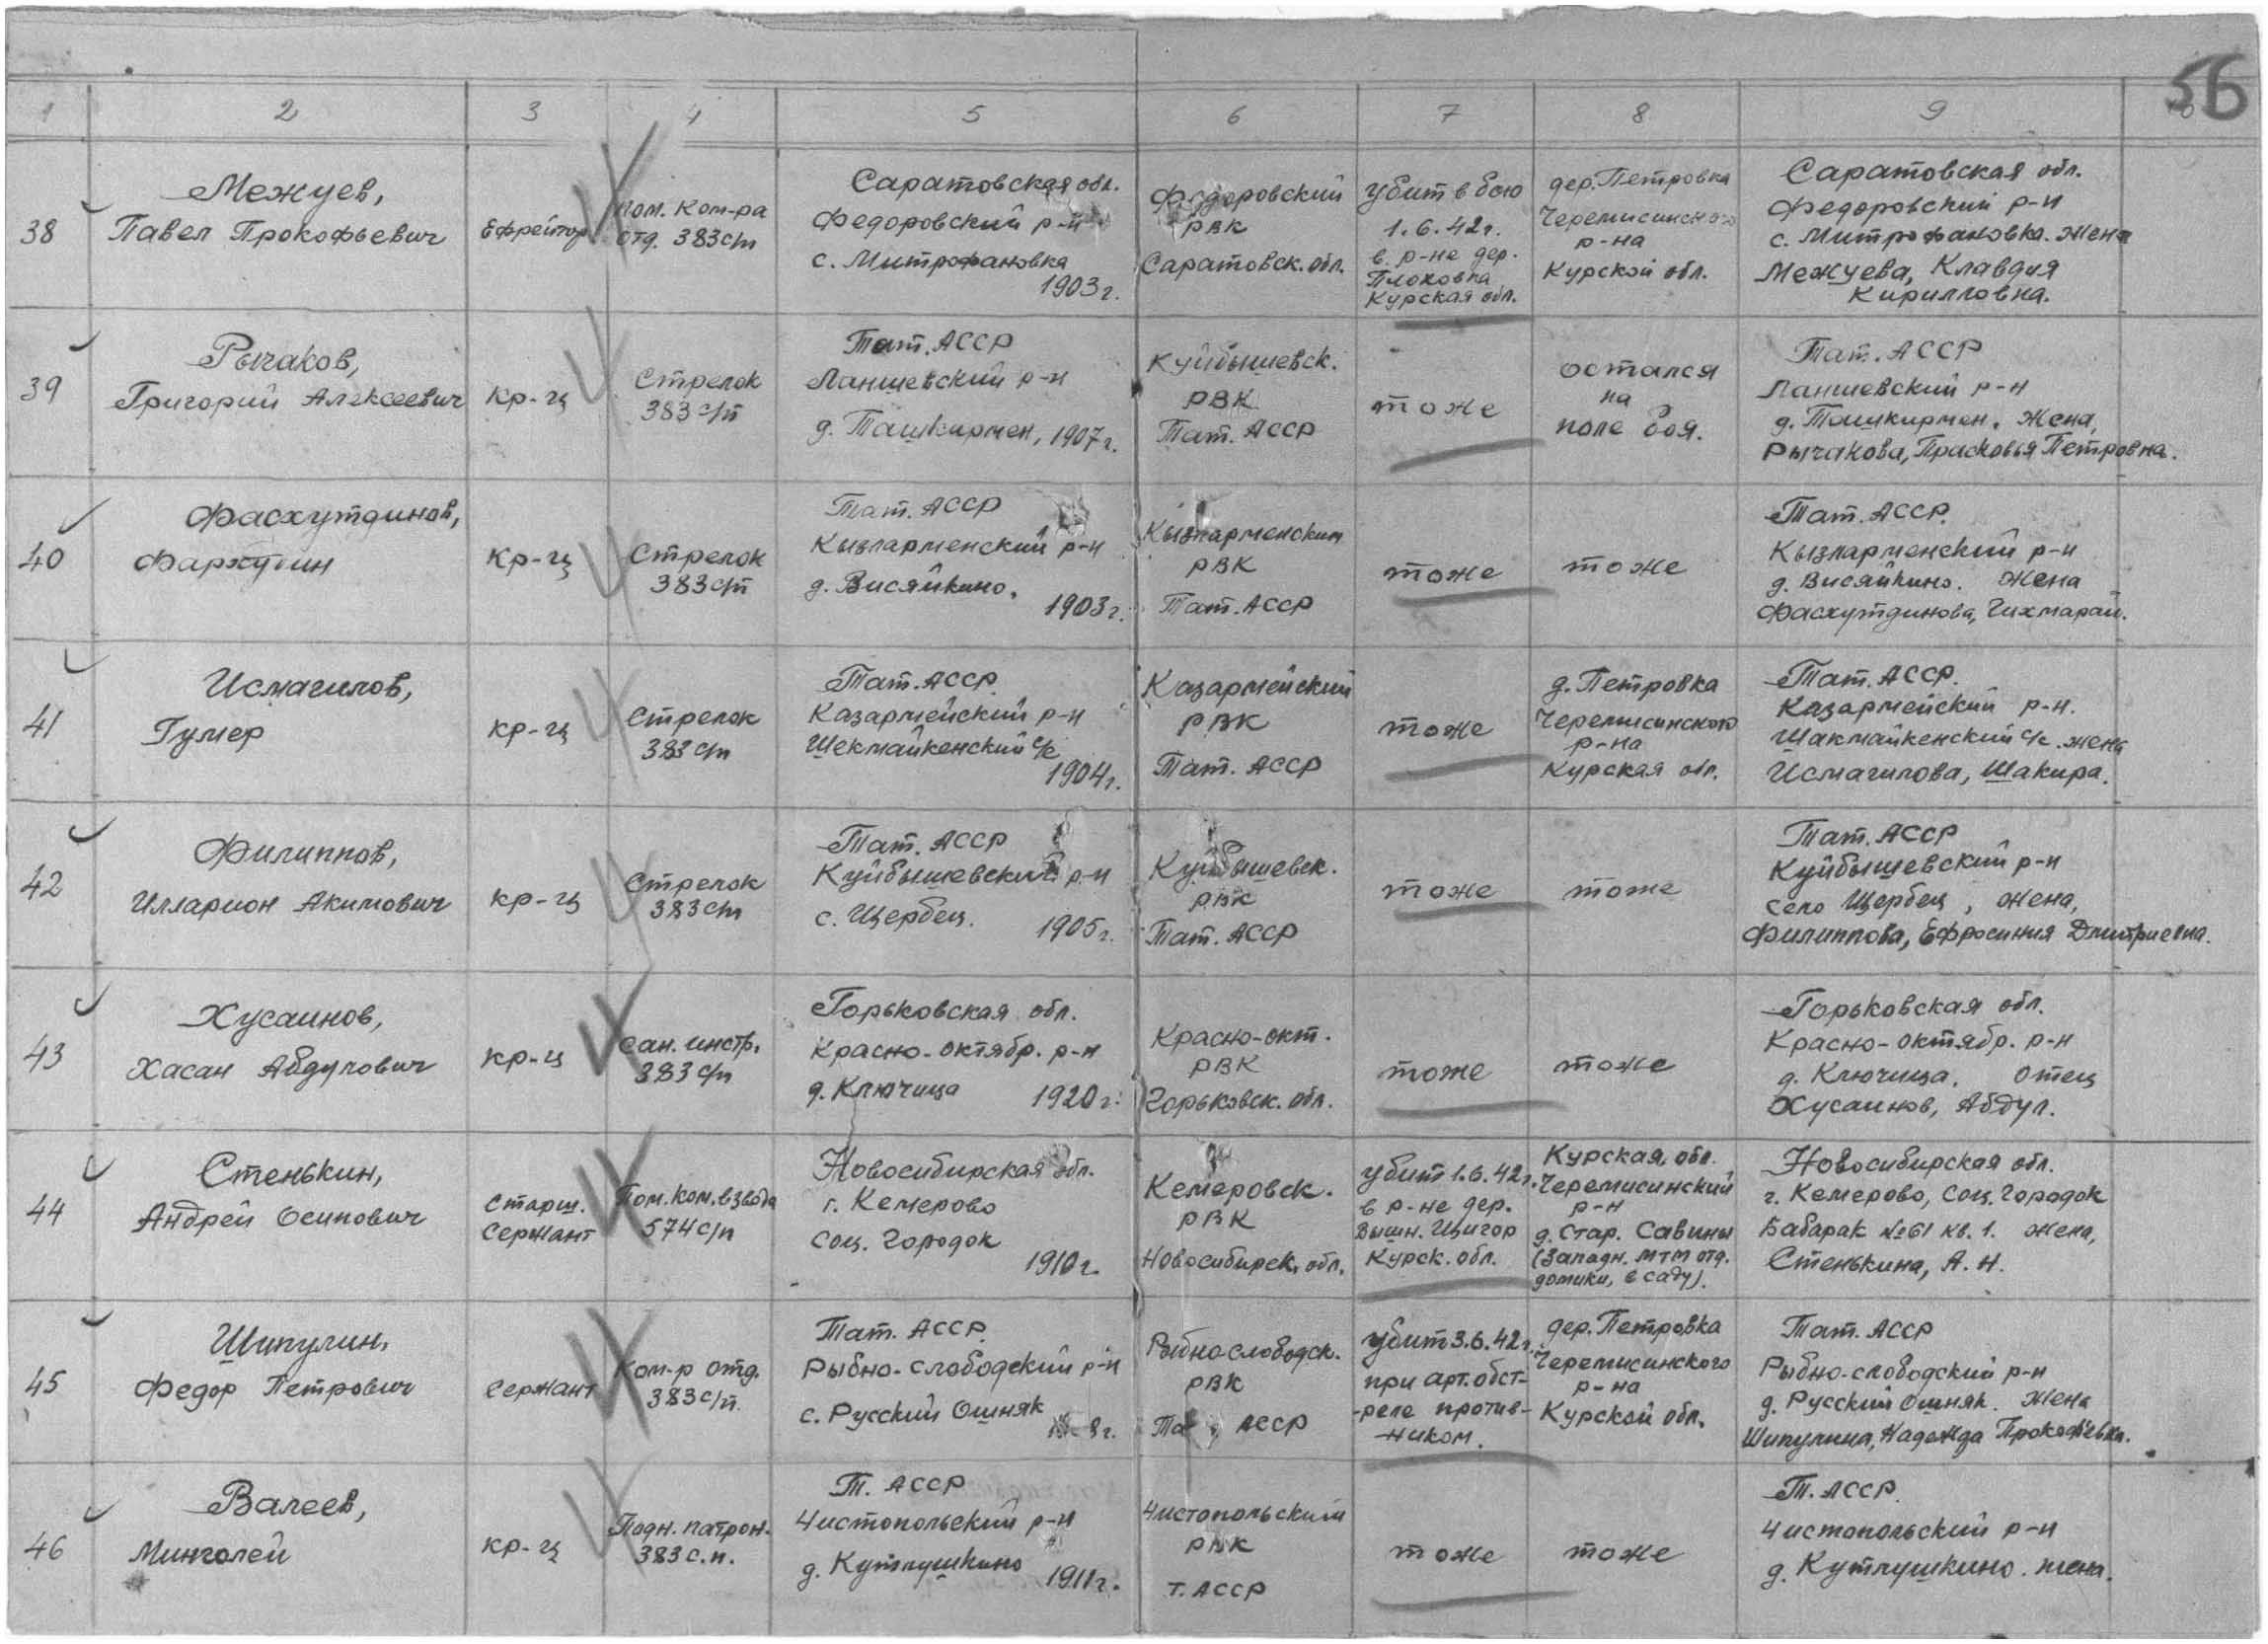 56
1 2 3 4 5 6 7 8 9
38
Межуев,
Павел Прокофьевич
Ефрейтор
Пом. Ком-ра
отд. 383 с/п
Саратовская обл.
Федоровский р-н
с. Митрофановка
1903 г.
Федоровский
РВК
Саратовск. обл.
Убит в бою
1.6.42 г.
в р-не дер.
Плоховка
Курская обл.
дер. Петровка
Черемисинского
р-на
Курской обл.
Саратовская обл.
Федоровский р-н
с. Митрофановка. Жена
Межуева, Клавдия
Кирилловна.
39
Рычаков,
Григорий Алексеевич
кр-ц
Стрелок
383 с/п
Тат. АССР
Лаишевский р-н
д. Ташкирмен, 1907 г.
Куйбышевск.
РВК
Тат. АССР
тоже
остался
на
поле боя.
Тат. АССР
Лаишевский р-н
д. Ташкирмен. Жена,
Рычакова, Прасковья Петровна.
40
Фасхутдинов,
кр-ц
Стрелок
383 с/п
Тат. АССР
Кызларменский р-н
д. Висяйкино.
1903 г.
Кызларменский
РВК
Тат. АССР
тоже
тоже
Тат. АССР.
Кызларменский р-н
д. Висяйкино. Жена
Фасхутдинова, Чихмарай.
41
Исмагилов,
Гумер
кр-ц
Стрелок
383 с/п
Тат. АССР.
Казармейский р-н
Шекмайкенский с/с
1904 г.
Казармейский
РВК
Тат. АССР
тоже
д. Петровка
Черемисинского
р-на
Курская обл.
Тат. АССР.
Казармейский р-н.
Шакмайкенский с/с. жена
Исмагилова, Шакира.
42
Филиппов,
Илларион Акимович
кр-ц
Стрелок
383 с/п
Тат. АССР
Куйбышевский р-н
с. Щербец. 1905 г.
Куйбышевск.
РВК
Тат. АССР
тоже
тоже
Тат. АССР
Куйбышевский р-н
село Щербец, жена,
Филиппова, Ефросиния Дмитриевна.
43
Хусаинов,
Хасан Абдулович
кр-ц
Сан. инстр.
383 с/п
Горьковская обл.
Красно-октябр. р-н
д. Ключица 1920 г.
Красно-окт.
РВК
Горьковск. обл.
тоже
тоже
Горьковская обл.
Красно-октябр. р-н
д. Ключица. отец
Хусаинов, Абдул.
44
Стенькин,
Андрей Осипович
Старш.
Сержант
Пом. ком. взвода
574 с/п
Новосибирская обл.
г. Кемерово
Соц. Городок
1910 г.
Кемеровск.
РВК
Новосибирск. обл.
Убит 1.6.42 г.
в р-не дер.
Вышн. Щигор
Курск. обл.
Курская, обл.
Черемисинский
р-н
д. Стар. Савины
(Западн. МТМ отд.
домики, в саду).
Новосибирская обл.
г. Кемерово, Соц. Городок
Бабарак № 61 кв. 1. жена,
Стенькина, А. Н.
45
Шипулин,
Федор Петрович
Сержант
Ком-р отд.
383 с/п.
Тат. АССР.
Рыбно-слободский р-н
с. Русский Ошняк
Рыбнослободск.
РВК
АССР
Убит 3.6.42 г.
при арт. обст-
-реле против-
-ником.
дер. Петровка
Черемисинского
р-на
Курской обл.
Тат. АССР
Рыбно-слободский р-н
д. Русский Ошняк. Жена
Шипулина, Надежда Прокофьевна.
46
Валеев,
Минголей
кр-ц
Подн. патрон.
383 с.п.
Т. АССР
Чистопольский р-н
д. Кутлушкино 1911 г.
Чистопольский
РВК
Т. АССР
тоже
тоже
Т. АССР.
Чистопольский р-н
д. Кутлушкино. жена.